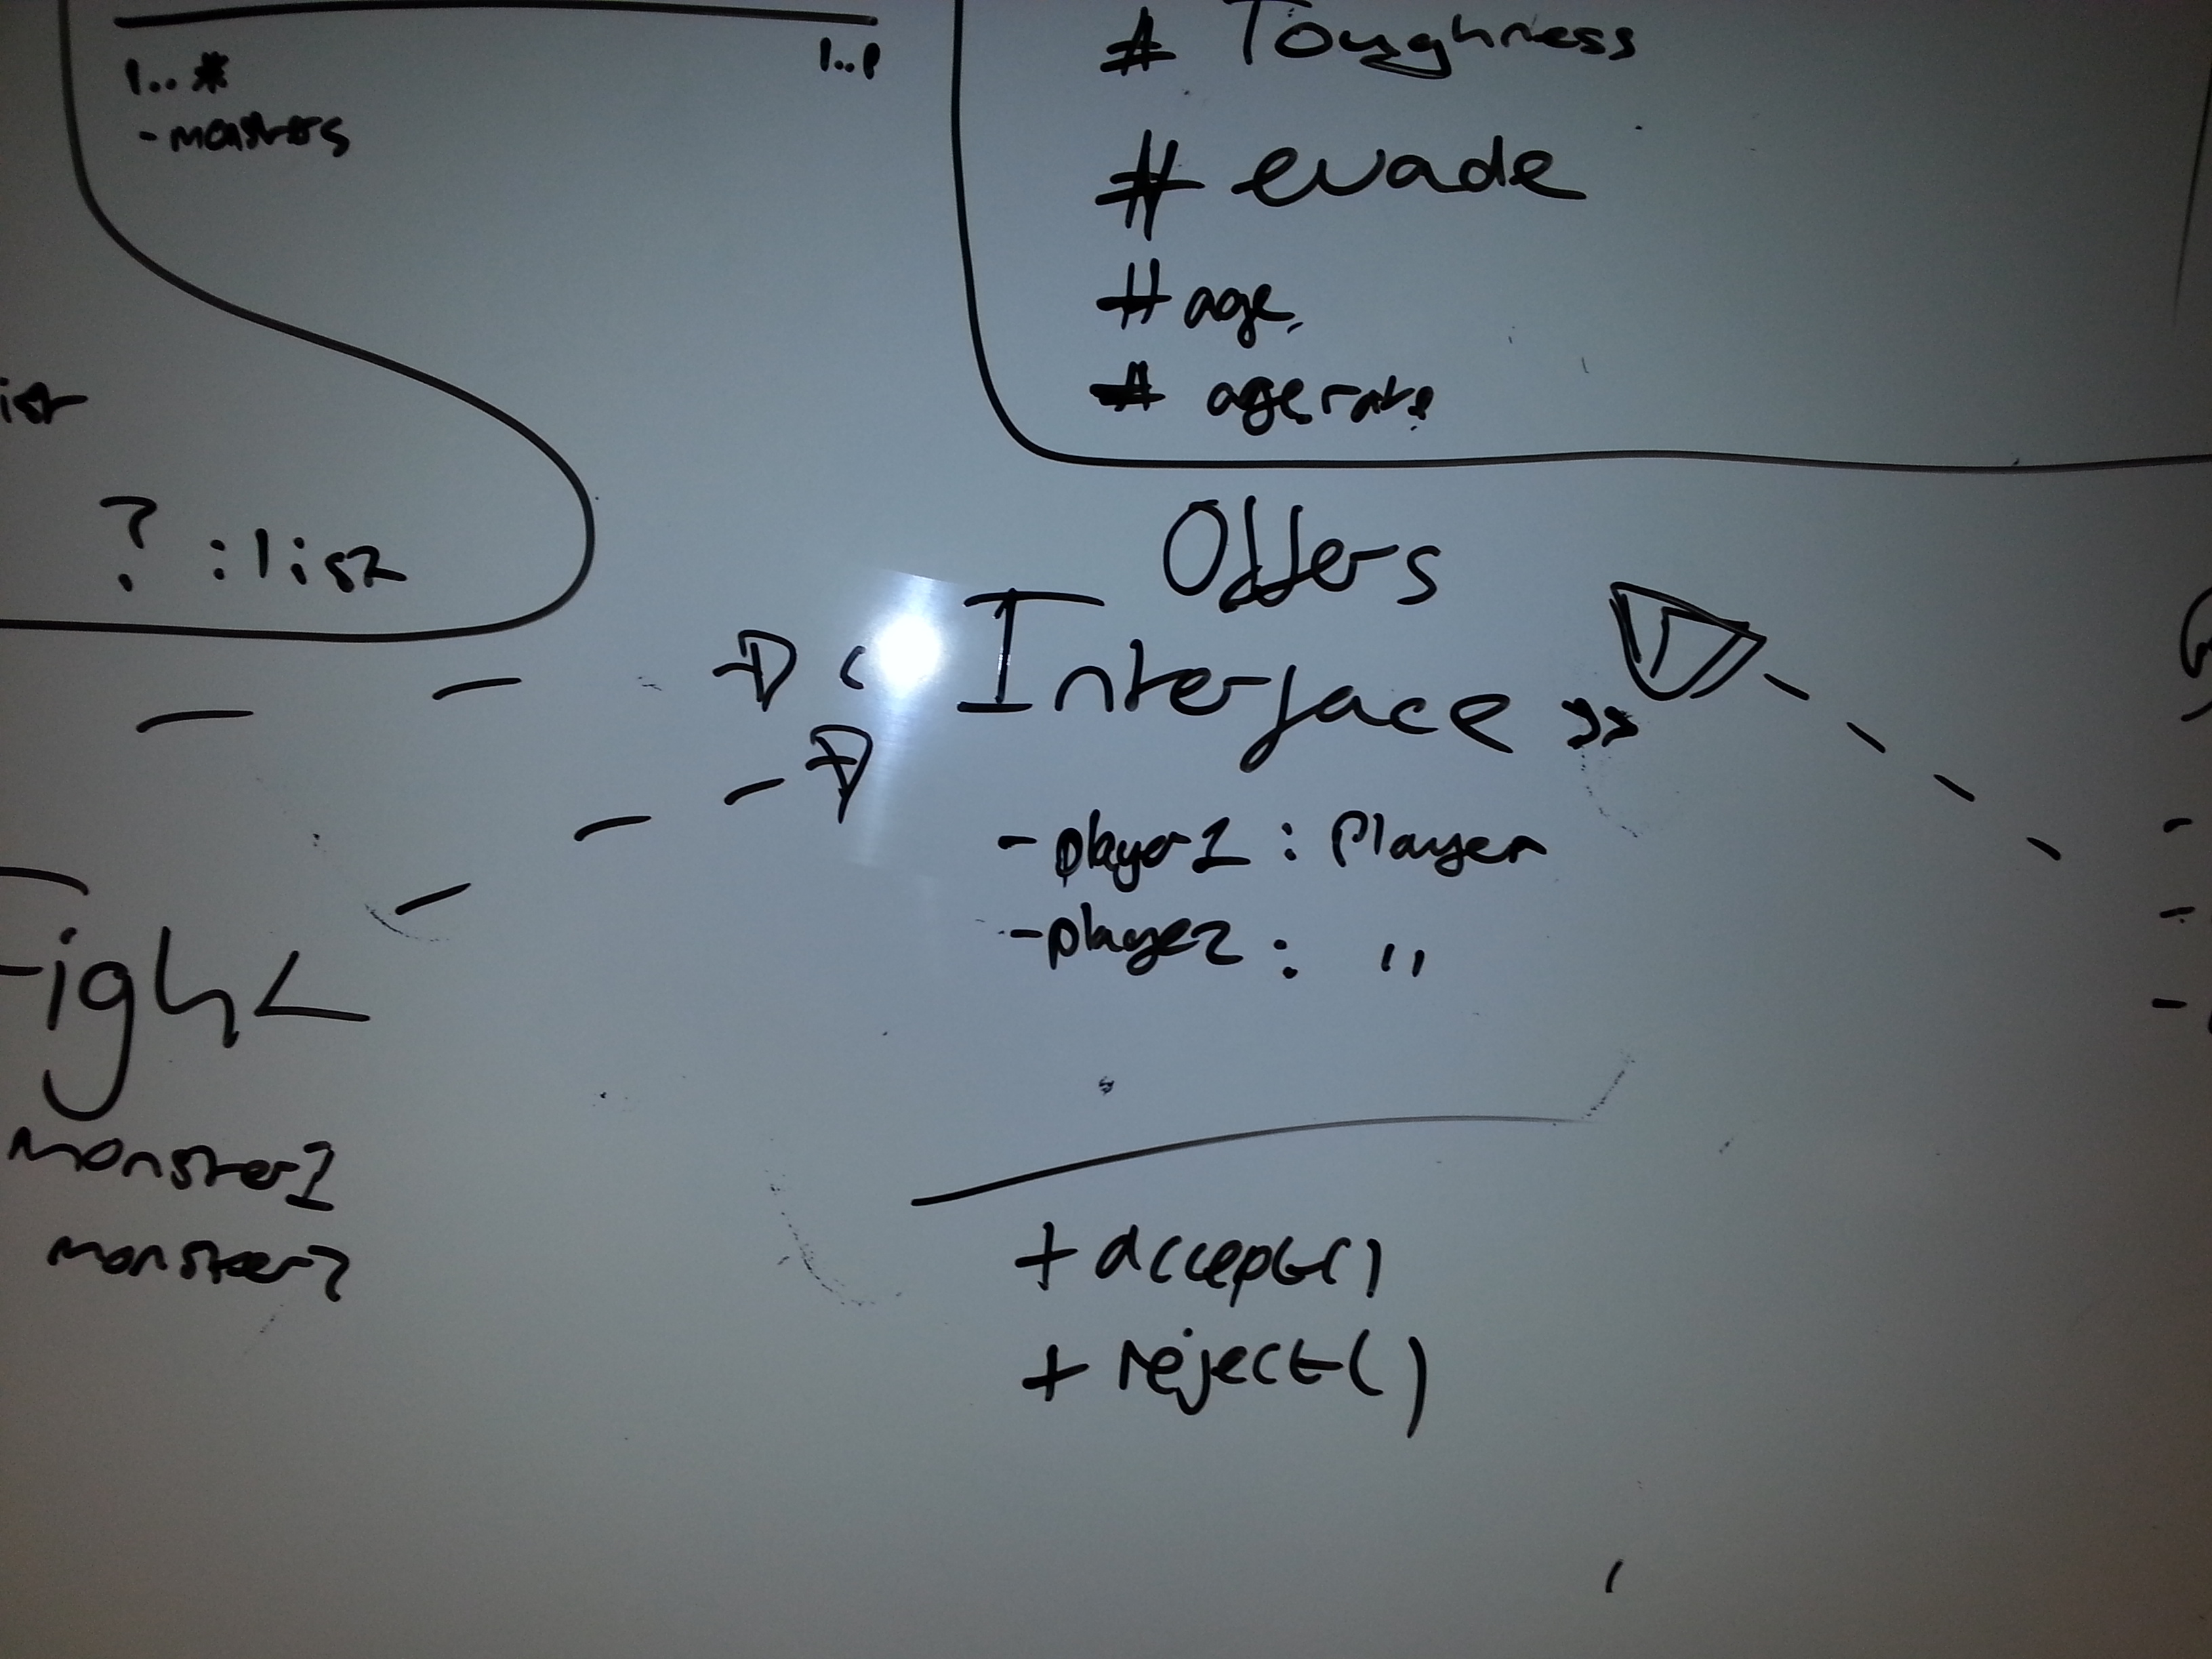 1..*
1..
- monsters
# Toughness
# evade
# age
# agerate
? : list
Offers
Interface >>
- player1 : Player
- player2 : "
+ accept()
+ reject()
Fight
monster1
monster2